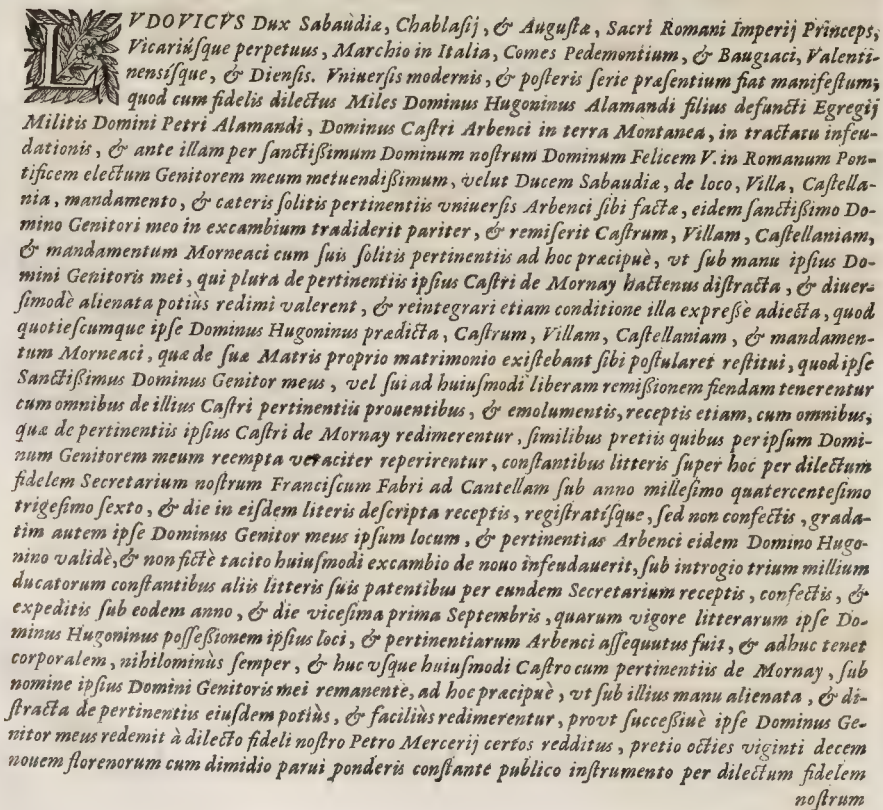 LVDOVICVS Dux Sabaudiæ, Chablasij, & Augustæ, Sacri Romani Imperij Princeps,
Vicariúsque perpetuus, Marchio in Italia, Comes Pedemontium, & Baugiaci, Valenti-
nensísque, & Diensis. Vniuersis modernis, & posteris serie præsentium fiat manifestum,
quod cum fidelis dilectus Miles Dominus Hugoninus Alamandi filius defuncti Egregij
Militis Domini Petri Alamandi, Dominus Castri Arbenci in terra Montanea, in tractatu infeu-
dationis, & ante illam per sanctißimum Dominum nostrum Dominum Felicem V. in Romanum Pon-
tificem electum Genitorem meum metuendißimum, velut Ducem Sabaudiæ, de loco, Villa, Castella-
nia, mandamento, & cæteris solitis pertinentiis vniuersis Arbenci sibi factæ, eidem sanctißimo Do-
mino Genitori meo in excambium tradiderit pariter, & remiserit Castrum, Villam, Castellaniam,
& mandamentum Morneaci cum suis solitis pertinentiis ad hoc præcipuè, vt sub manu ipsius Do-
mini Genitoris mei, qui plura de pertinentiis ipsius Castri de Mornay hactenus distracta, & diuer-
simodè alienata potiùs redimi valerent, & reintegrari etiam conditione illa expressè adiecta, quod
quotiescumque ipse Dominus Hugoninus prædicta, Castrum, Villam, Castellaniam, & mandamen-
tum Morneaci, quæ de suæ Matris proprio matrimonio existebant sibi postularet restitui, quod ipse
Sanctißimus Dominus Genitor meus, vel sui ad huiusmodi liberam remißionem fiendam tenerentur
cum omnibus de illius Castri pertinentiis prouentibus, & emolumentis, receptis etiam, cum omnibus,
quæ de pertinentiis ipsius Castri de Mornay redimerentur, similibus pretiis quibus per ipsum Domi-
num Genitorem meum reempta veraciter reperirentur, constantibus litteris super hoc per dilectum
fidelem Secretarium nostrum Franciscum Fabri ad Cantellam sub anno millesimo quatercentesimo
trigesimo sexto, & die in eisdem literis descripta receptis, registratísque, sed non confectis, grada-
tim autem ipse Dominus Genitor meus ipsum locum, & pertinentias Arbenci eidem Domino Hugo-
nino validè, & non fictè tacito huiusmodi excambio de nouo infeudauerit, sub introgio trium millium
ducatorum constantibus aliis litteris suis patentibus per eundem Secretarium receptis, confectis, &
expeditis sub eodem anno, & die vicesima prima Septembris, quarum vigore litterarum ipse Do-
minus Hugoninus possessionem ipsius loci, & pertinentiarum Arbenci assequutus fuit, & adhuc tenet
corporalem, nihilominùs semper, & huc vsque huiusmodi Castro cum pertinentiis de Mornay, sub
nomine ipsius Domini Genitoris mei remanente, ad hoc præcipuè, vt sub illius manu alienata, & di-
stracta de pertinentiis eiusdem potiùs, & faciliùs redimerentur, provt succeßiuè ipse Dominus Ge-
nitor meus redemit à dilecto fideli nostro Petro Mercerij certos redditus, pretio octies viginti decem
nouem florenorum cum dimidio parui ponderis constante publico instrumento per dilectum fidelem
nostrum